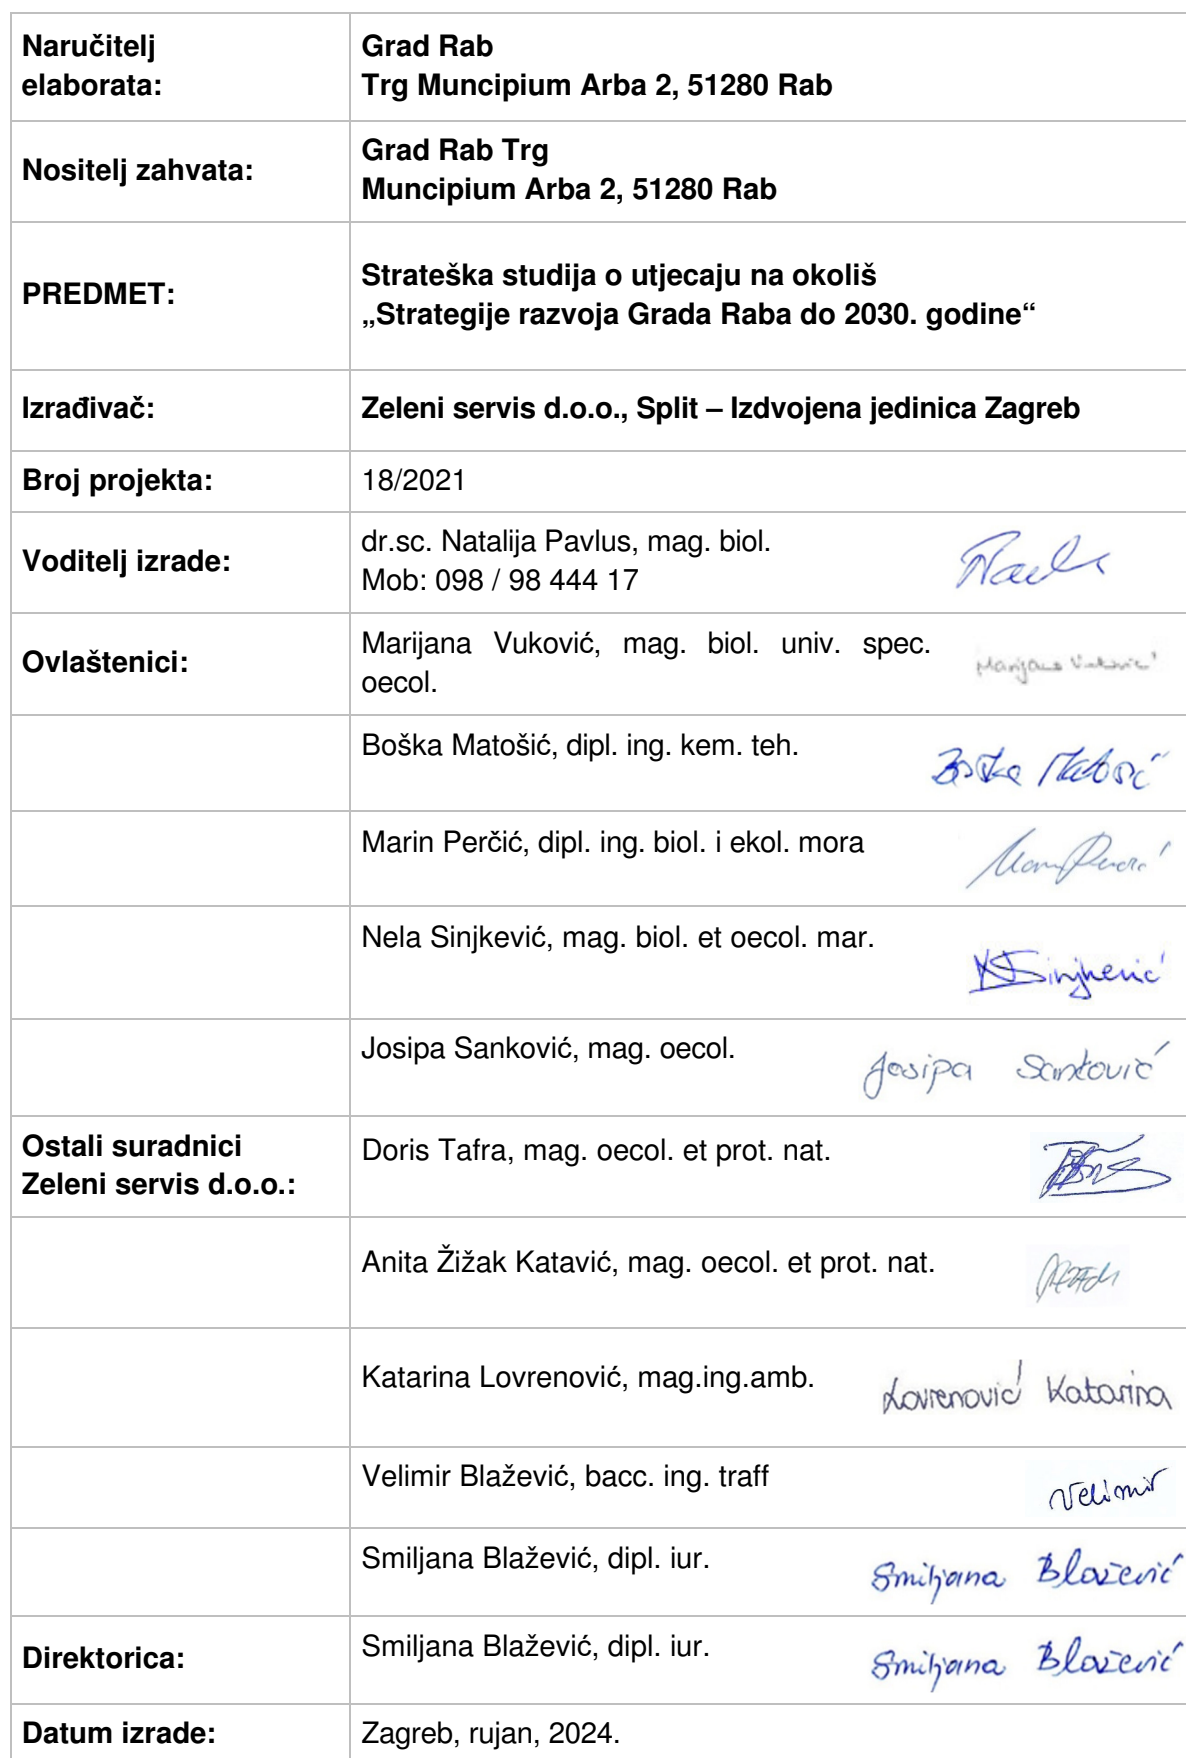 Naručitelj
elaborata:
Grad Rab
Trg Muncipium Arba 2, 51280 Rab
Nositelj zahvata:
Grad Rab Trg
Muncipium Arba 2, 51280 Rab
PREDMET:
Strateška studija o utjecaju na okoliš
„Strategije razvoja Grada Raba do 2030. godine“
Izrađivač:
Zeleni servis d.o.o., Split – Izdvojena jedinica Zagreb
Broj projekta:
18/2021
Voditelj izrade:
dr.sc. Natalija Pavlus, mag. biol.
Mob: 098 / 98 444 17
Ovlaštenici:
Marijana Vuković, mag. biol. univ. spec.
oecol.
Marijana Vuković
Boška Matošić, dipl. ing. kem. teh.
Boška Matošić
Marin Perčić, dipl. ing. biol. i ekol. mora
Nela Sinjkević, mag. biol. et oecol. mar.
NSinjkević
Josipa Sanković, mag. oecol.
Josipa Sanković
Ostali suradnici
Zeleni servis d.o.o.:
Doris Tafra, mag. oecol. et prot. nat.
Anita Žižak Katavić, mag. oecol. et prot. nat.
Katarina Lovrenović, mag.ing.amb.
Lovrenović Katarina
Velimir Blažević, bacc. ing. traff
Velimir
Smiljana Blažević, dipl. iur.
Smiljana Blažević
Direktorica:
Smiljana Blažević, dipl. iur.
Smiljana Blažević
Datum izrade:
Zagreb, rujan, 2024.